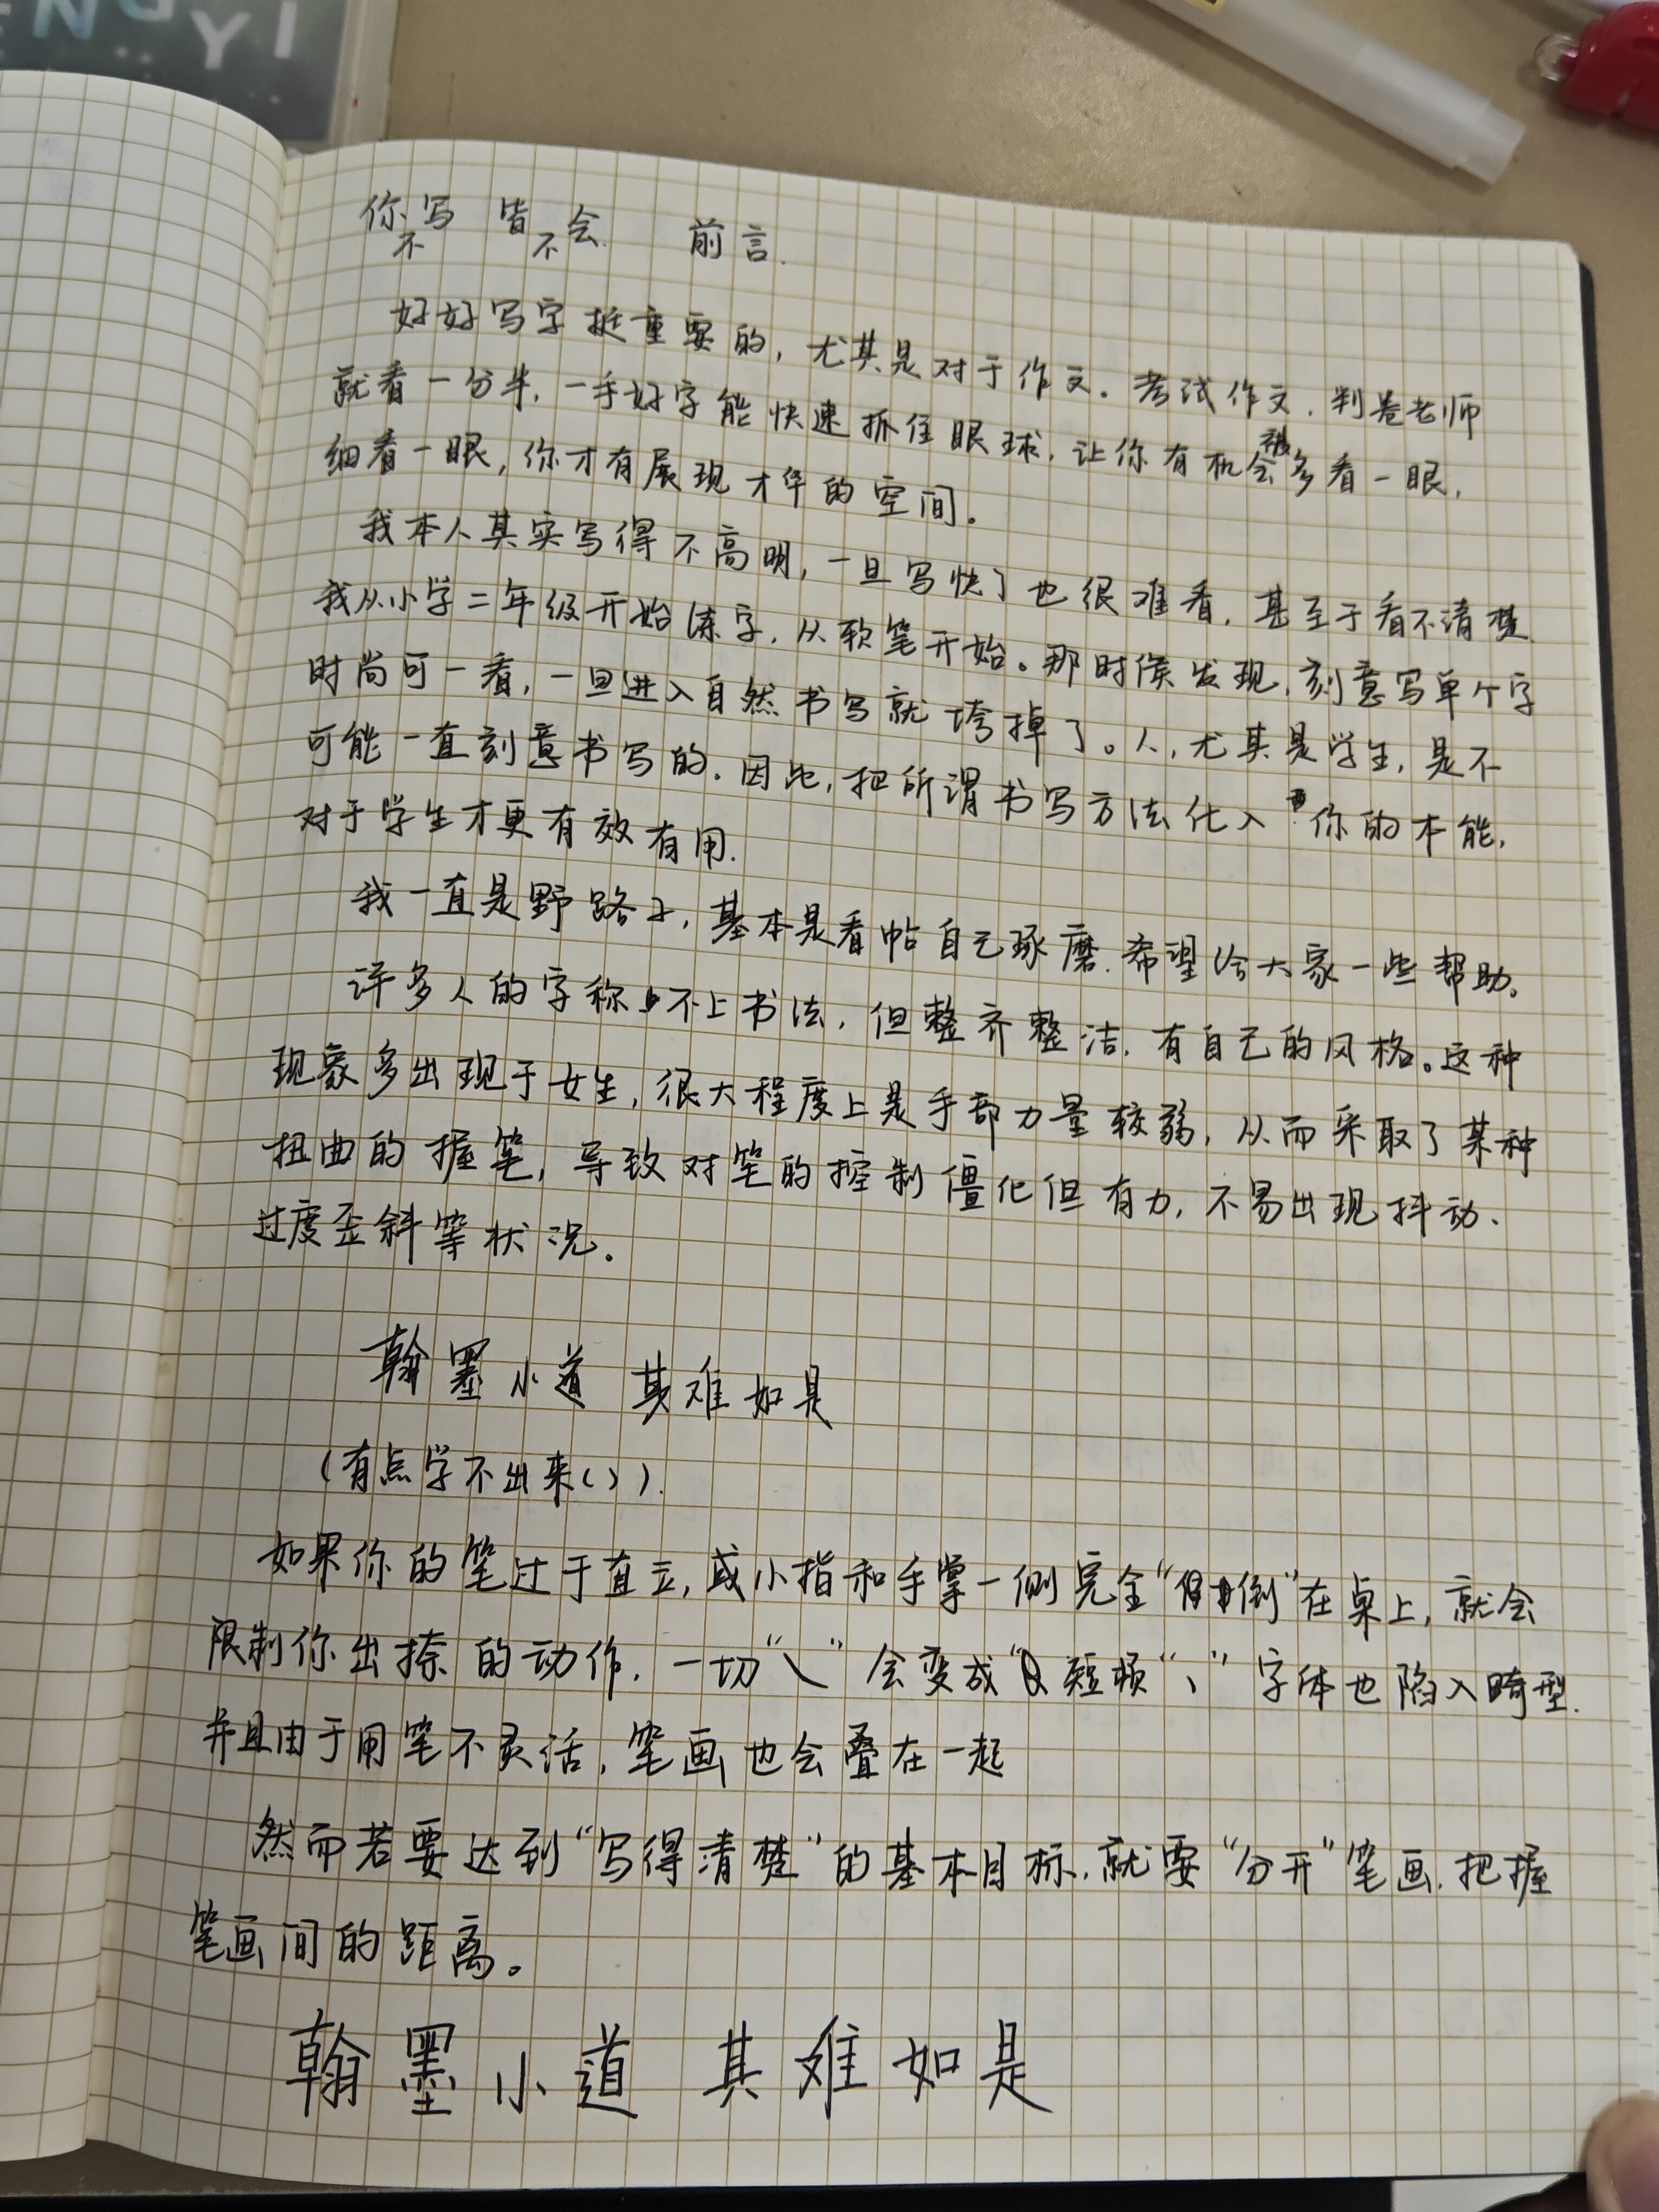 你不写 皆不会 前言.
好好写字挺重要的，尤其是对于作文。考试作文，判卷老师
就看一分半，一手好字能快速抓住眼球，让你有机会被多看一眼，
细看一眼，你才有展现才华的空间。
我本人其实写得不高明，一旦写快了也很难看，甚至于看不清楚.
我从小学二年级开始练字，从软笔开始。那时候发现，刻意写单个字
时尚可一看，一旦进入自然书写就垮掉了。人，尤其是学生，是不
可能一直刻意书写的．因此，把所谓书写方法化入你的本能，
对于学生才更有效有用.
我一直是野路子，基本是看帖自己琢磨．希望给大家一些帮助。
许多人的字称不上书法，但整齐整洁，有自己的风格。这种
现象多出现于女生，很大程度上是手部力量较弱，从而采取了某种
扭曲的握笔，导致对笔的控制僵化但有力，不易出现抖动、
过度歪斜等状况。
翰墨小道 其难如是
（有点学不出来（））.
如果你的笔过于直立，或小指和手掌一侧完全“倒”在桌上，就会
限制你出捺的动作，一切“㇏”会变成短顿“丶”字体也陷入畸型.
并且由于用笔不灵活，笔画也会叠在一起
然而若要达到“写得清楚”的基本目标，就要“分开”笔画，把握
笔画间的距离。
翰墨小道 其难如是